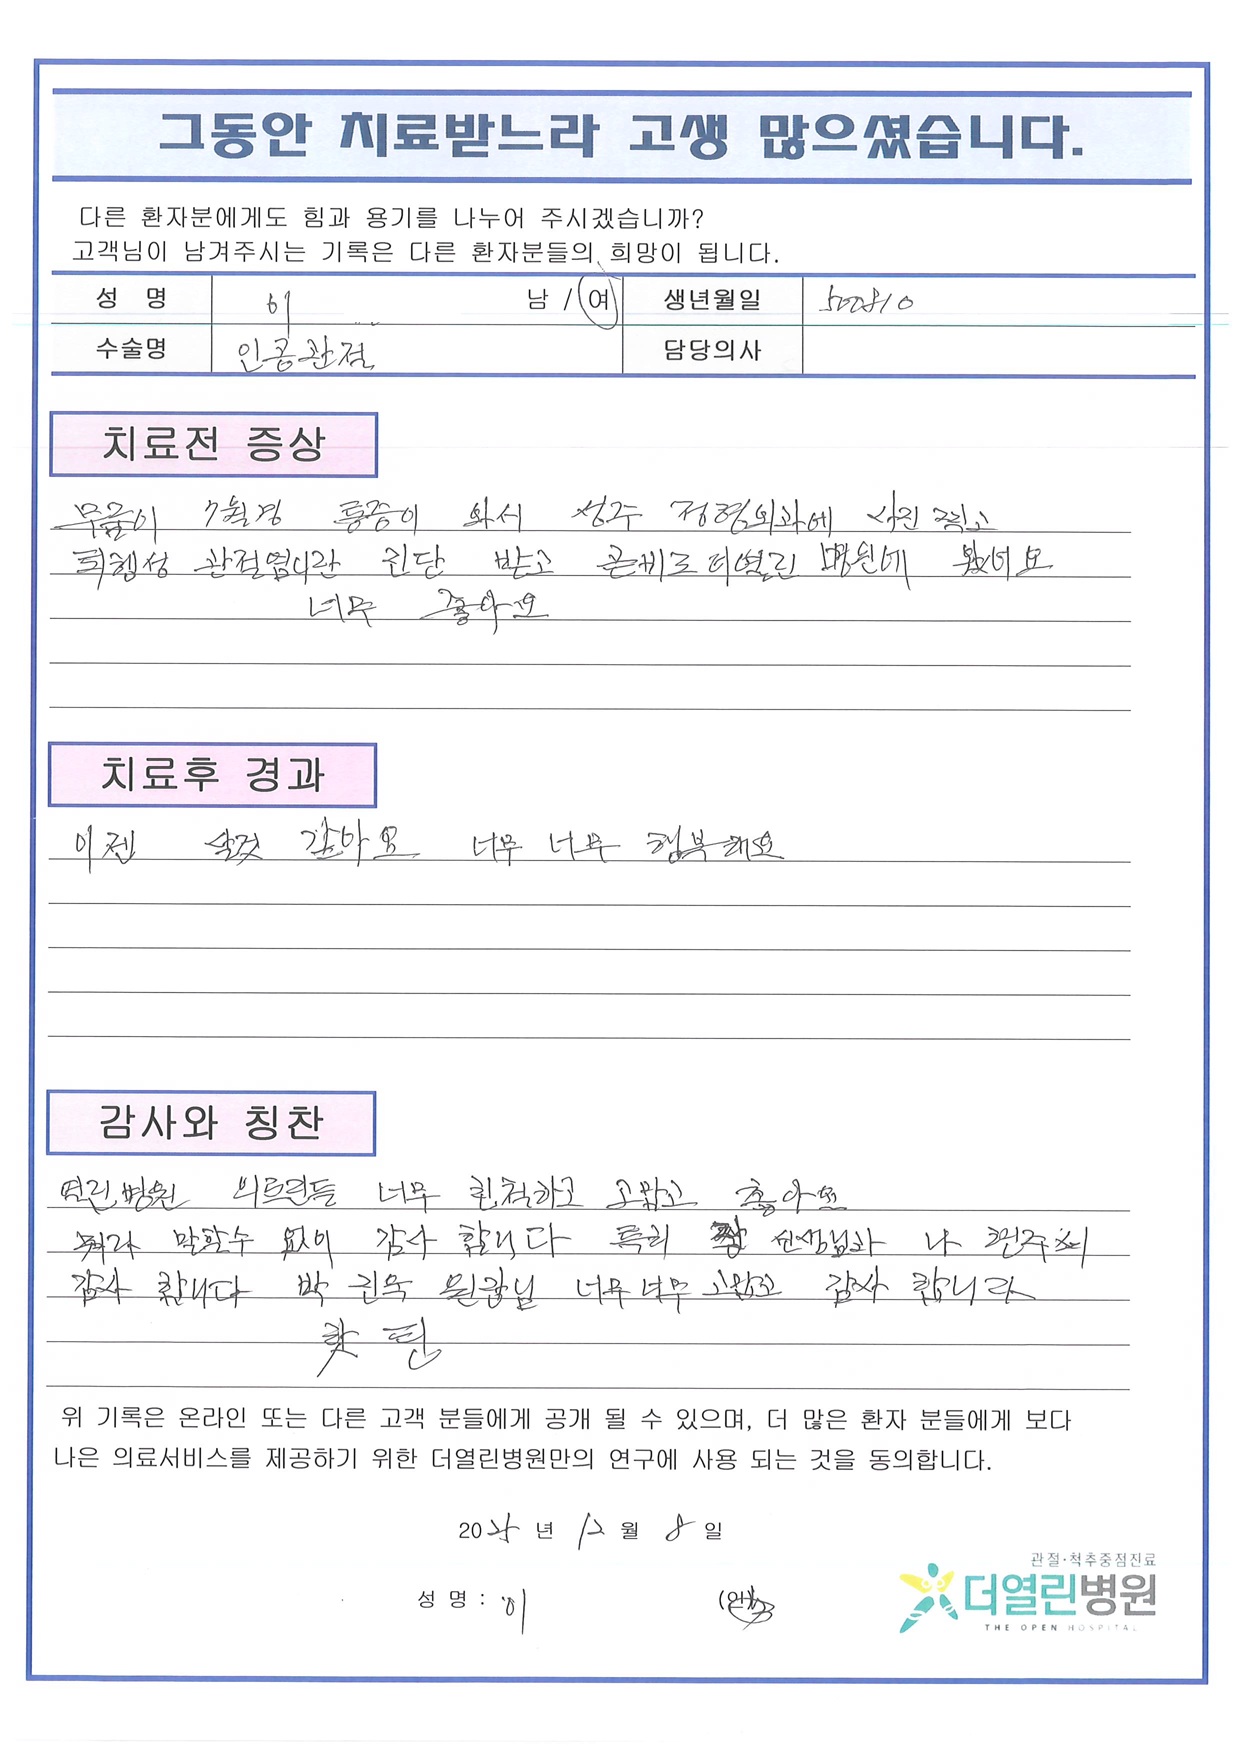 그동안 치료받느라 고생 많으셨습니다.
다른 환자분에게도 힘과 용기를 나누어 주시겠습니까?
고객님이 남겨주시는 기록은 다른 환자분들의 희망이 됩니다.
성 명 이 남 / 여 생년월일 500810
수술명 인공관절 담당의사
치료전 증상
무릎이 7월경 통증이 와서 성주 정형외과에 사진 찍고
퇴행성 관절염이란 진단 받고 더열린 병원에 왔네요
너무 좋아요
치료후 경과
이젠 살것 같아요 너무 너무 행복해요
감사와 칭찬
열린병원 너무 친척하고 고맙고 좋아요
말할수 없이 감사 합니다 특히 선생님과
감사 합니다 박 진욱 원장님 너무너무 고맙고 감사 합니다
위 기록은 온라인 또는 다른 고객 분들에게 공개 될 수 있으며, 더 많은 환자 분들에게 보다
나은 의료서비스를 제공하기 위한 더열린병원만의 연구에 사용 되는 것을 동의합니다.
20 년 12 월 8 일
성 명 : 이 (인)
관절·척추중점진료
더열린병원
THE OPEN HOSPITAL